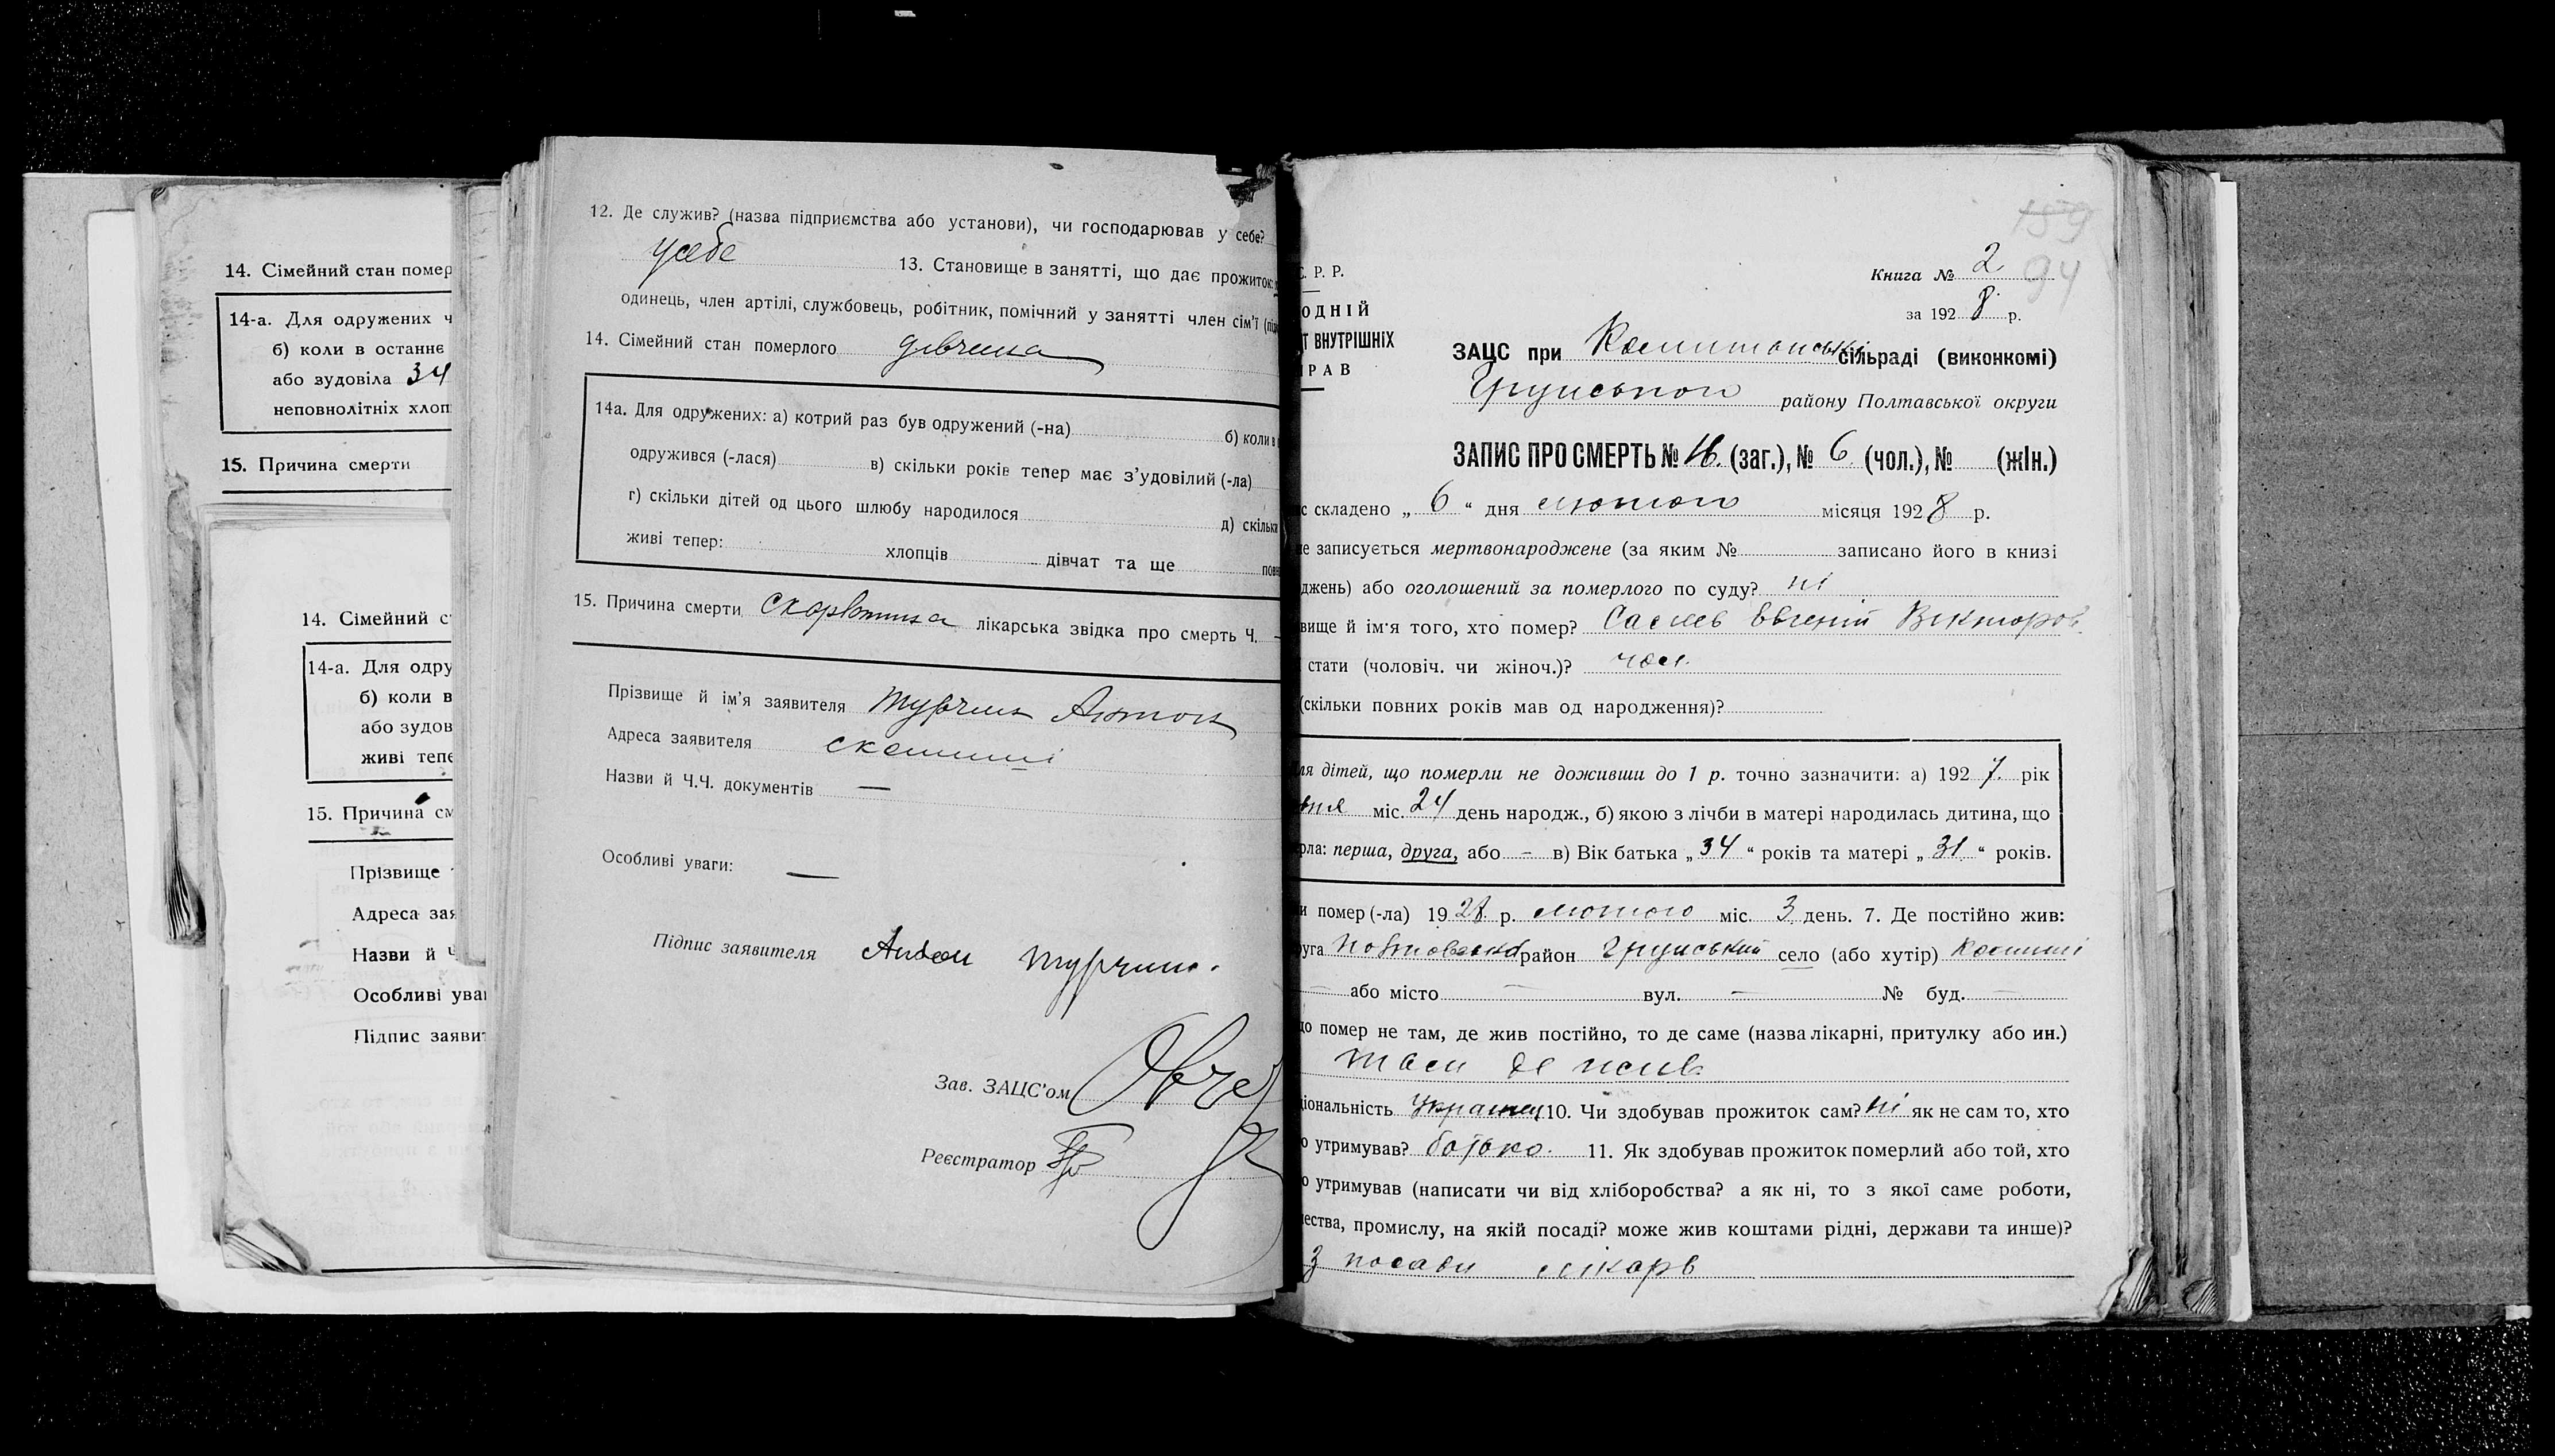 14. Сімейний стан помер
14-а. Для одружених ч
б) коли в останнє
або зудовіла 34
неповнолітніх хлоп
15. Причина смерти
14. Сімейний с
14-а. Для одру
б) коли в
або зудов
живі тепе
15. Причина см
Прізвище
Адреса зая
Назви й Ч
Особливі ува
Підпис заяви
12. Де служив? (назва підприємства або установи), чи господарював у себе?
усебе 13. Становище в занятті, що дає прожиток:
одинець, член артілі, службовець, робітник, помічний у занятті член сім'ї (під
14. Сімейний стан померлого дівчина
14а. Для одружених: а) котрий раз був одружений (-на) б) коли в
одружився (-лася) в) скільки років тепер має з'удовілий (-ла)
г) скільки дітей од цього шлюбу народилося д) скільки
живі тепер: хлопців дівчат та ще повн
15. Причина смерти скорлотина лікарська звідка про смерть Ч. –
Прізвище й ім'я заявителя Турчин Антон
Адреса заявителя
Назви й Ч.Ч. документів —
Особливі уваги: —
Підпис заявителя Антон Турчин.
Зав. ЗАЦС'ом
Реєстратор
159
С. Р. Р.
Книга № 2 94
ОДНІЙ
за 1928 р.
Т ВНУТРІШНІХ
РАВ
ЗАЦС при сільраді (виконкомі)
Грунського району Полтавської округи
ЗАПИС ПРО СМЕРТЬ № 16. (заг.), № 6 (чол.), № (жін.)
с складено „ 6 “ дня лютого місяця 1928 р.
не записується мертвонароджене (за яким № записано його в книзі
джень) або оголошений за померлого по суду? ні
вище й ім'я того, хто помер? Евгеній Вікторов.
стати (чоловіч. чи жіноч.)? чол.
(скільки повних років мав од народження)?
ля дітей, що померли не доживши до 1 р. точно зазначити: а) 1927. рік
вня міс. 24 день народж., б) якою з лічби в матері народилась дитина, що
рла: перша, друга, або – в) Вік батька „ 34 “ років та матері „ 31 “ років.
и помер (-ла) 1928 р. лютого міс. 3 день. 7. Де постійно жив:
руга Полтавська район Грунський село (або хутір)
– або місто – вул. – № буд. –
що помер не там, де жив постійно, то де саме (назва лікарні, притулку або ин.)
там де жив
ціональність українец 10. Чи здобував прожиток сам? ні як не сам то, хто
о утримував? батько. 11. Як здобував прожиток померлий або той, хто
о утримував (написати чи від хліборобства? а як ні, то з якої саме роботи,
ества, промислу, на якій посаді? може жив коштами рідні, держави та инше)?
з посади лікаря